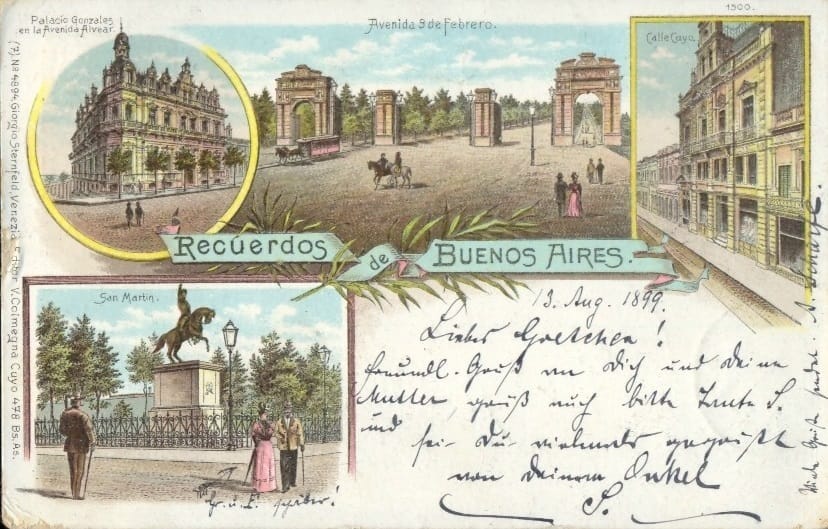 Palacio Gonzales
en la Avenida Alvear.
Avenida 9 de Febrero.
1900.
Calle Cuyo.
(7) No 4694, Giorgio Sternfeld, Venezia. Editor V. Colmegna Cuyo 478 Bs. As.
RECUERDOS de BUENOS AIRES.
San Martin.
13. Aug. 1899.
Liebes Gretchen!
freundl. Gruß an Dich und Deine
Mutter grüß auch bitte Tante S.
und sei Du vielmals gegrüßt
von Deinem Onkel
S.
Hr. u. Fr.
Viele Grüße sendet A.